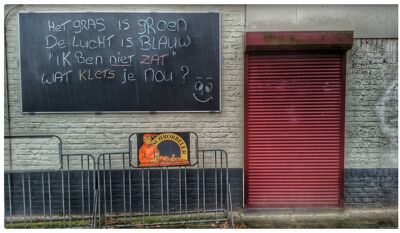 Het GRAS is GROEN
De LucHT is BLAUW
"iK Ben nieT ZAT"
WAT KLeTS je Nou ?
SCHROBBELÈR